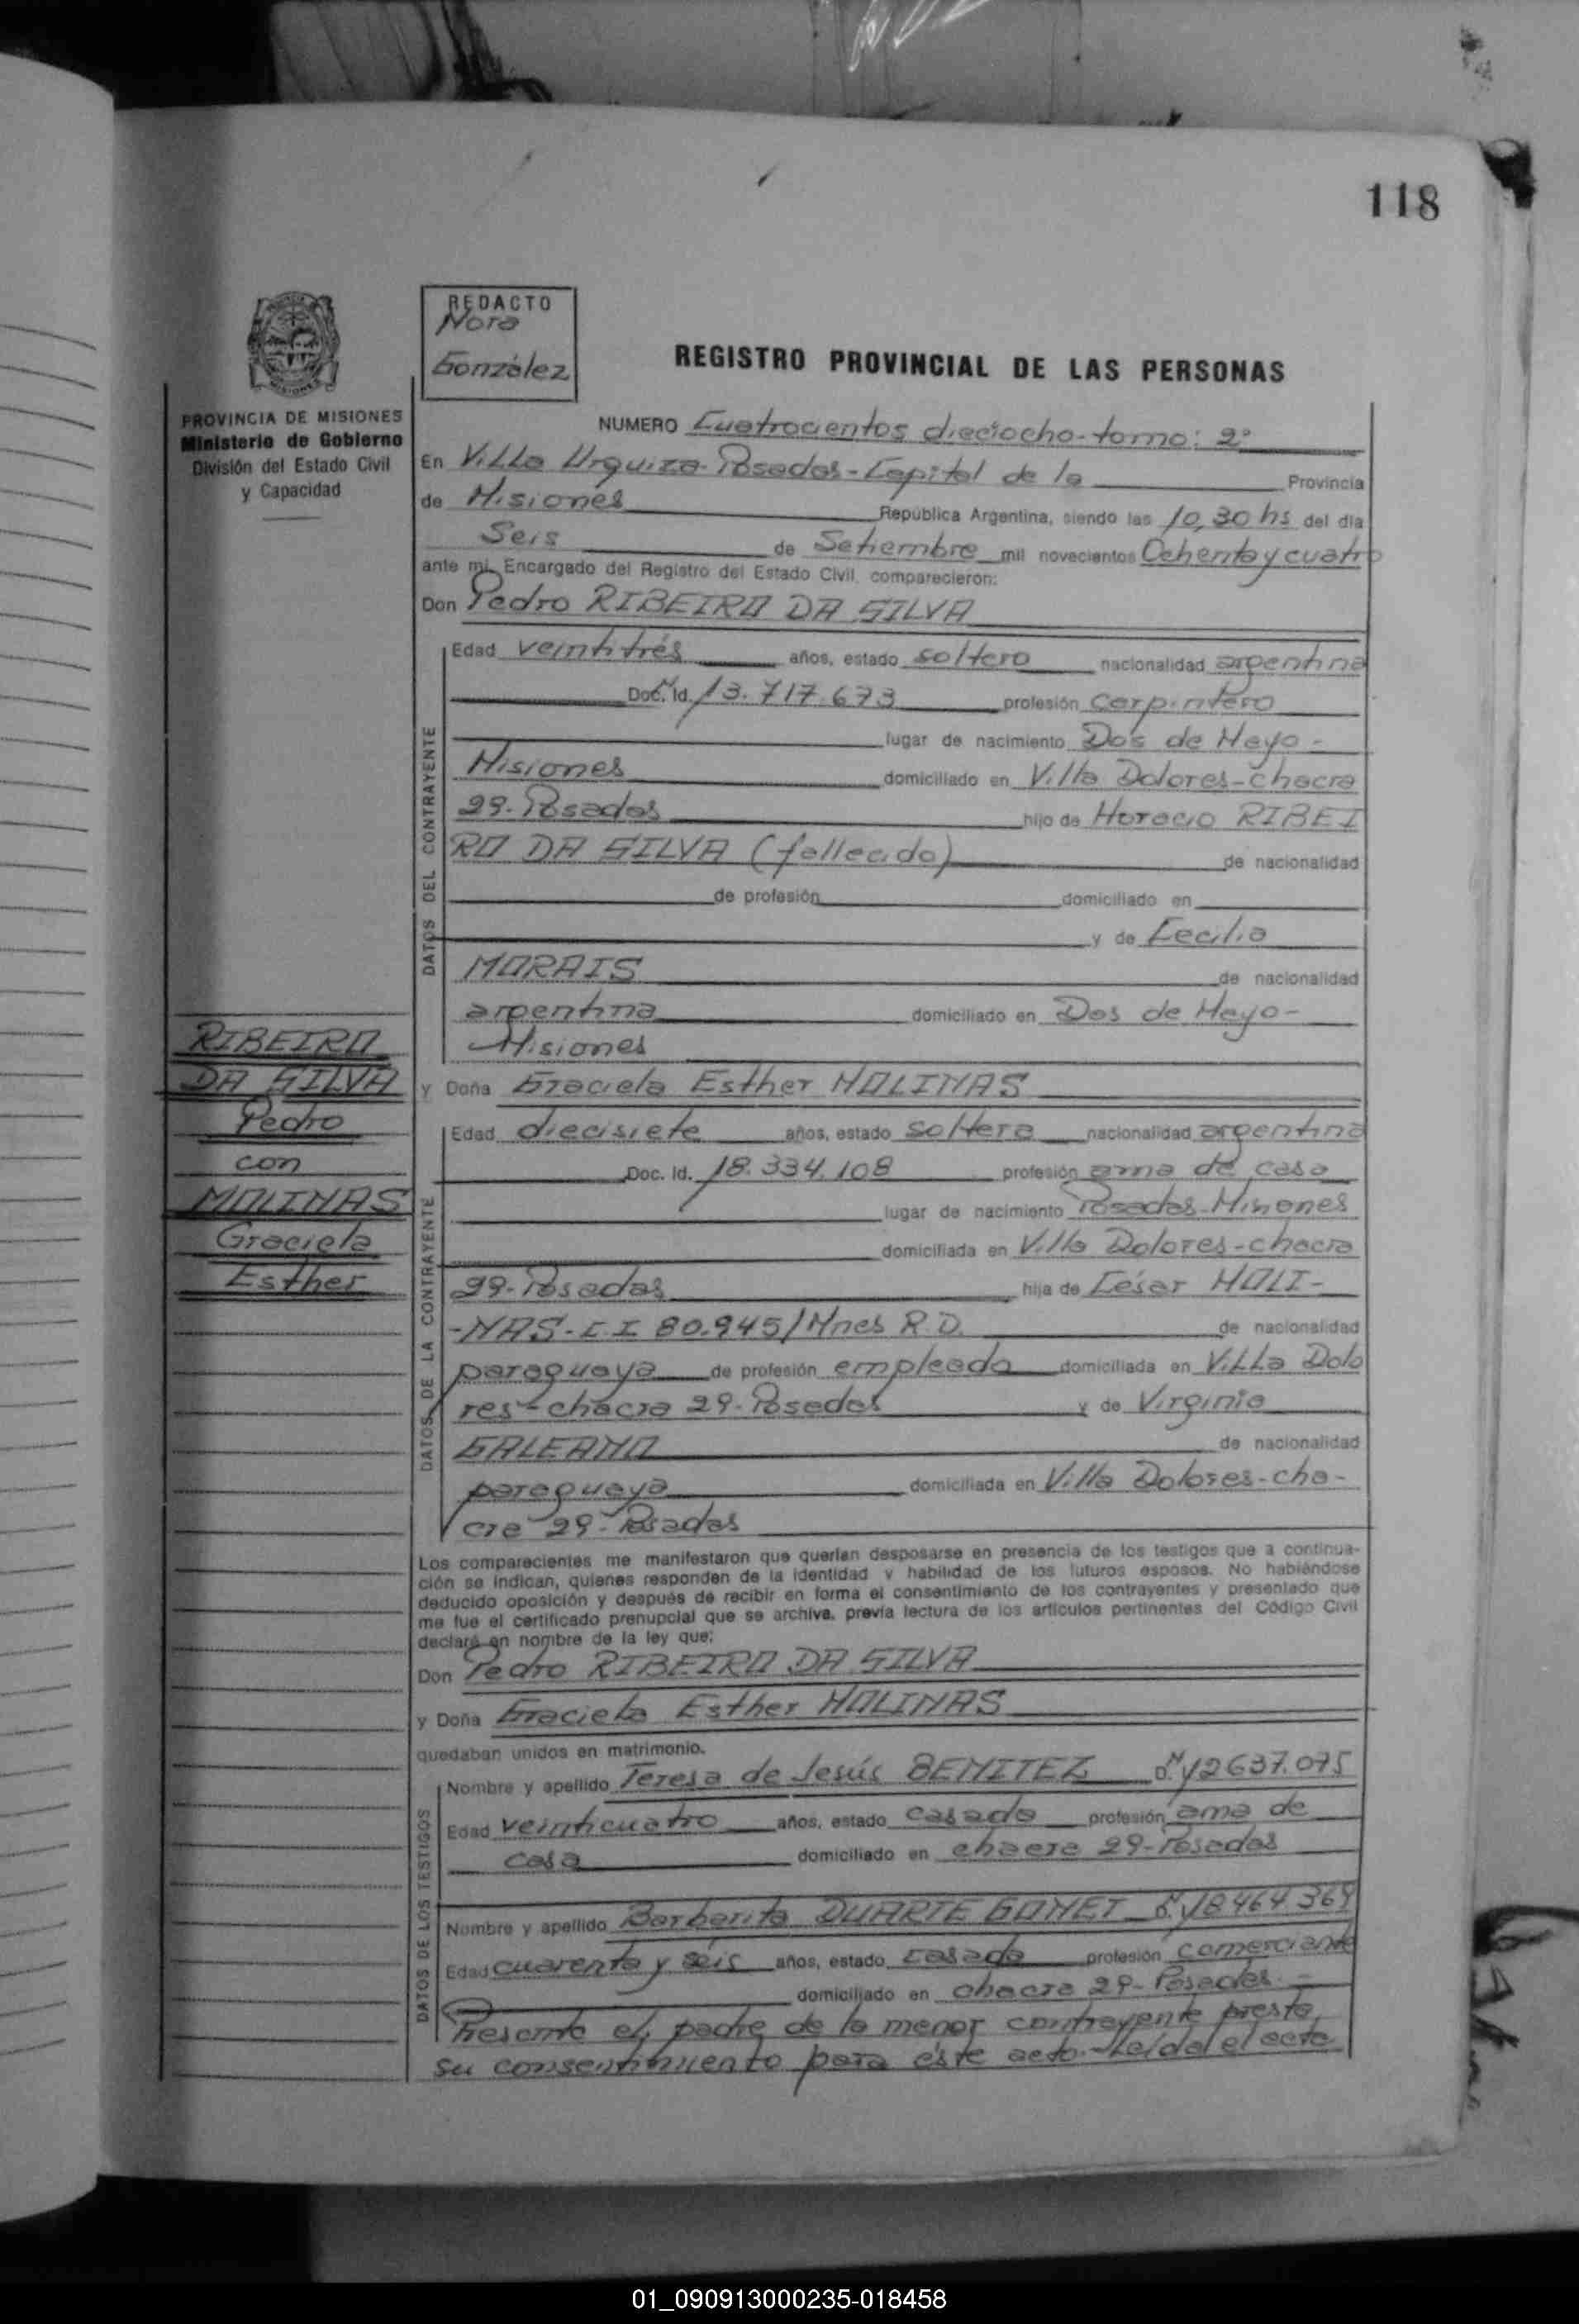 118
REDACTO
Nora
González
REGISTRO PROVINCIAL DE LAS PERSONAS
PROVINCIA DE MISIONES
Ministerio de Gobierno
División del Estado Civil
y Capacidad
NUMERO Cuatrocientos dieciocho-tomo: 2º
En Villa Urquiza-Posadas-Capital de la Provincia
de Misiones República Argentina, siendo las 10,30 hs del día
Seis de Setiembre mil novecientos Ochenta y cuatro
ante mi, Encargado del Registro del Estado Civil, comparecieron:
Don Pedro RIBEIRO DA SILVA
DATOS DEL CONTRAYENTE
Edad veintitrés años, estado soltero nacionalidad argentina
Doc. Id. 13.717.673 profesión carpintero
lugar de nacimiento Dos de Mayo-
Misiones domiciliado en Villa Dolores-chacra
29-Posadas hijo de Horacio RIBEI
RO DA SILVA (fallecido) de nacionalidad
de profesión domiciliado en
y de Cecilia
MORAIS de nacionalidad
argentina domiciliado en Dos de Mayo-
Misiones
RIBEIRO
DA SILVA
Pedro
con
MOLINAS
Graciela
Esther
y Doña Graciela Esther MOLINAS
DATOS DE LA CONTRAYENTE
Edad diecisiete años, estado soltera nacionalidad argentina
Doc. Id. 18.334.108 profesión ama de casa
lugar de nacimiento Posadas-Misiones
domiciliada en Villa Dolores-chacra
29-Posadas hija de César MOLI-
-NAS-C.I 80.945/Mnes R.D. de nacionalidad
paraguaya de profesión empleado domiciliada en Villa Dolo
res-chacra 29-Posadas y de Virginia
GALEANO de nacionalidad
paraguaya domiciliada en Villa Dolores-cha-
cra 29-Posadas
Los comparecientes me manifestaron que querían desposarse en presencia de los testigos que a continua-
ción se indican, quienes responden de la identidad y habilidad de los futuros esposos. No habiéndose
deducido oposición y después de recibir en forma el consentimiento de los contrayentes y presentado que
me fue el certificado prenupcial que se archiva, previa lectura de los artículos pertinentes del Código Civil
declaré en nombre de la ley que:
Don Pedro RIBEIRO DA SILVA
y Doña Graciela Esther MOLINAS
quedaban unidos en matrimonio.
DATOS DE LOS TESTIGOS
Nombre y apellido Teresa de Jesús BENITEZ D.N.I 12637.075
Edad veinticuatro años, estado casada profesión ama de
casa domiciliado en chacra 29-Posadas
Nombre y apellido Barbarita DUARTE GOMET 18464.369
Edad cuarenta y seis años, estado casada profesión comerciante
domiciliado en chacra 29-Posadas.-
Presente el padre de la menor contrayente presta
su consentimiento para éste acto. Leída el acta
01_090913000235-018458